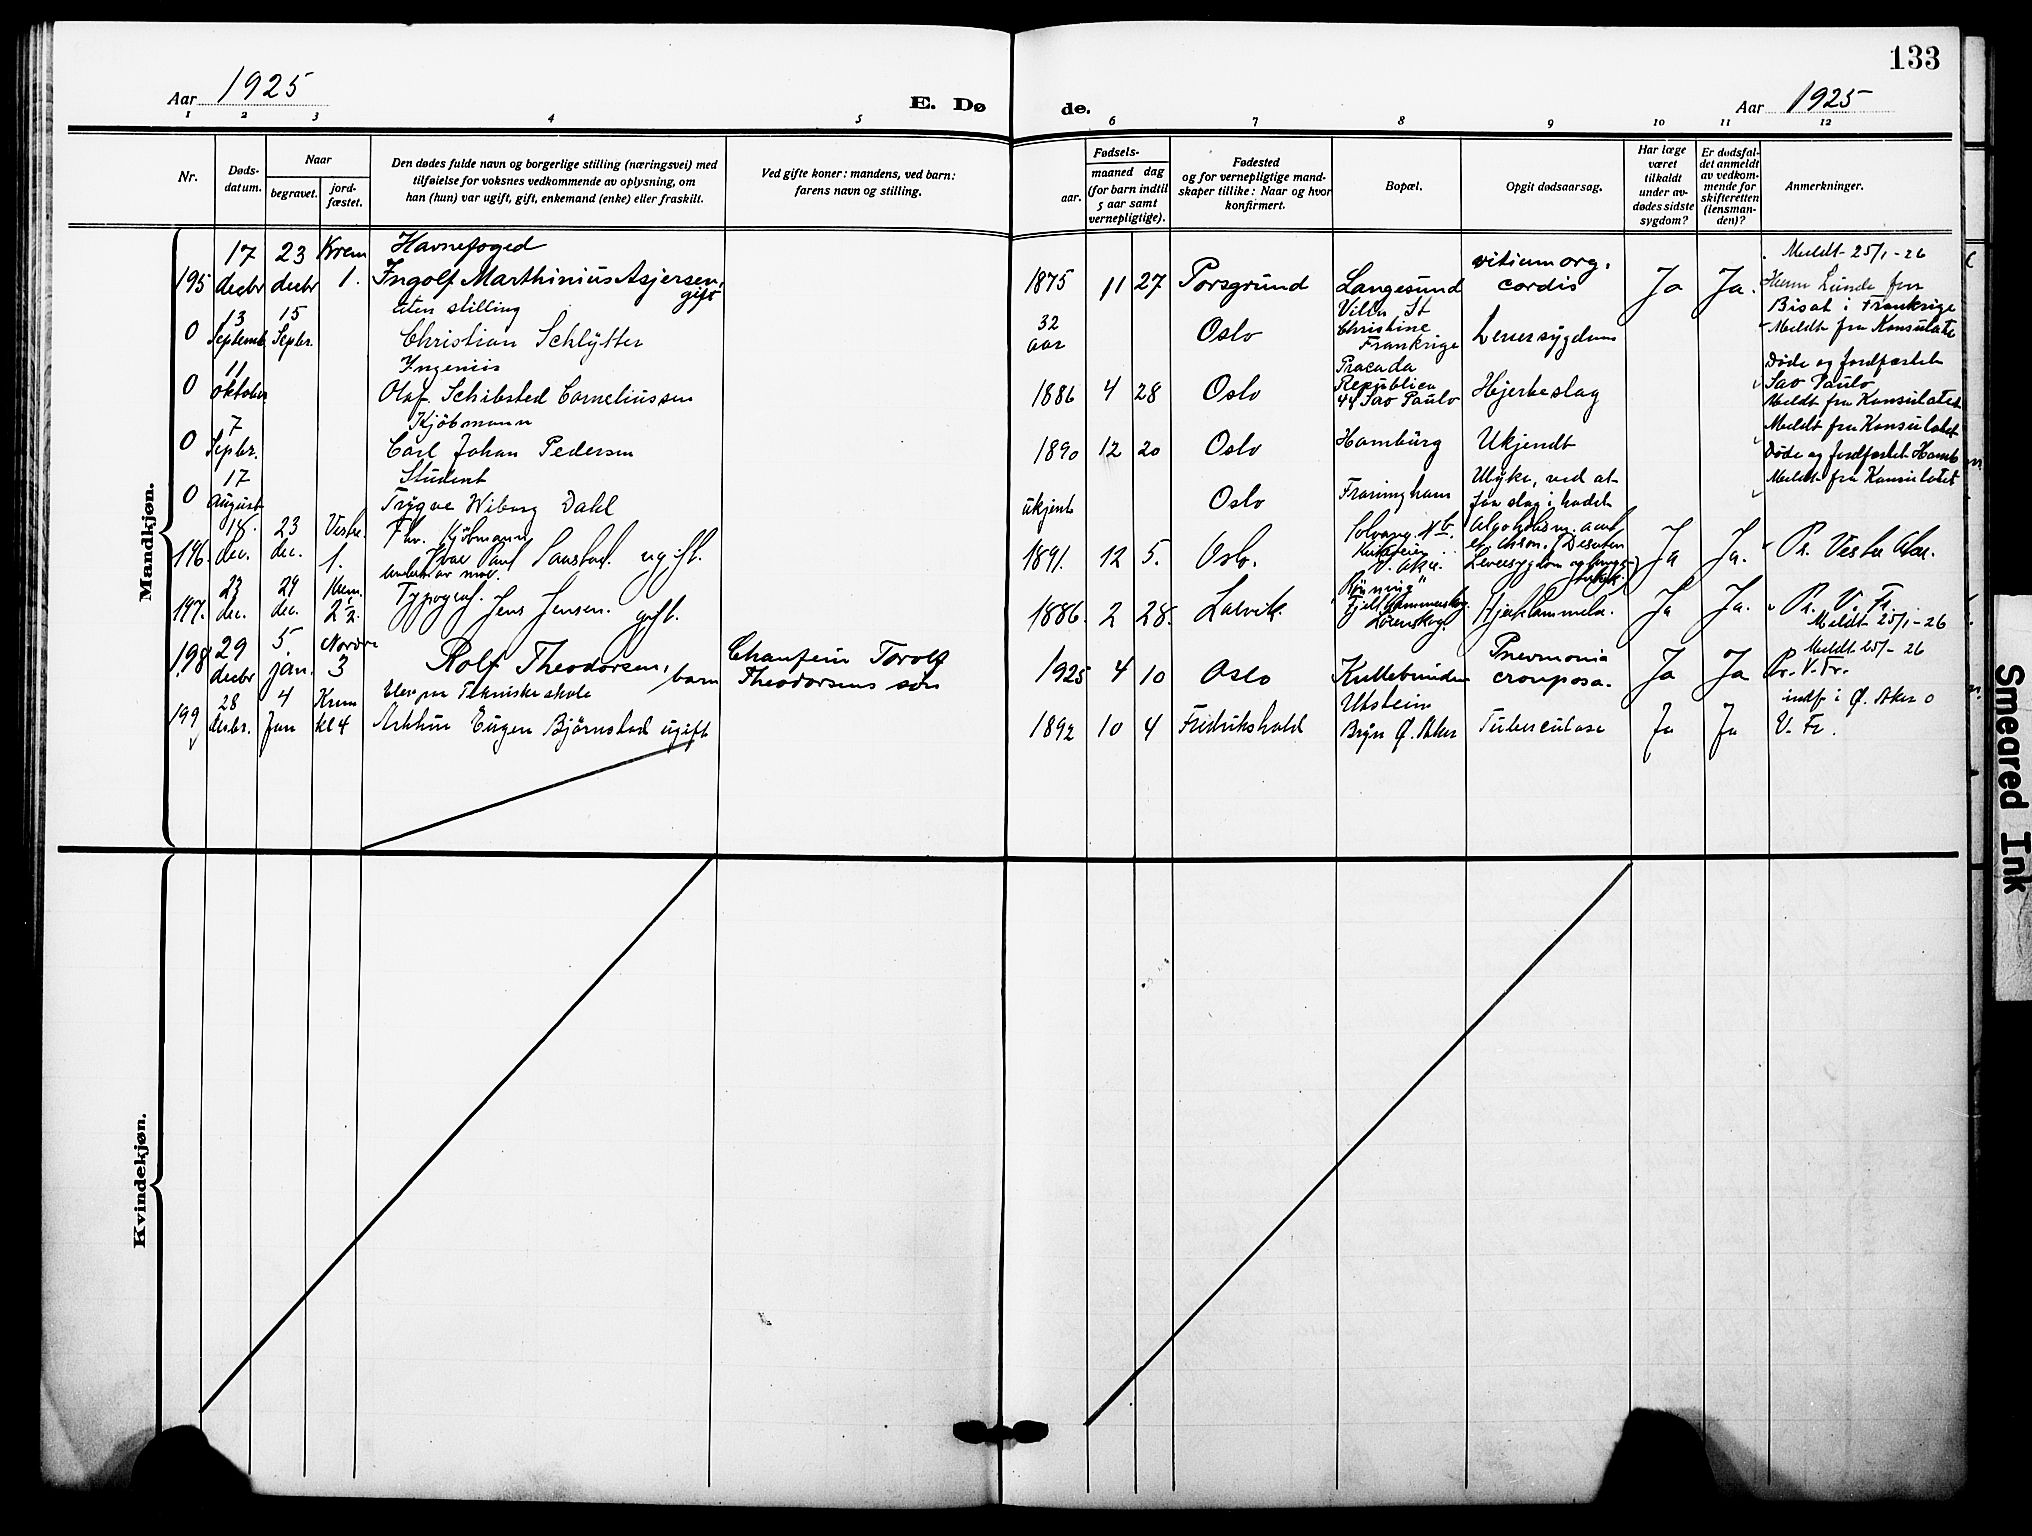 133
Aar 1925
E. Dø de.
Aar 1925
1 2 3 4 5 6 7 8 9 10 11 12
Nr.
Døds-
datum.
Naar
begravet.
jord-
fæstet.
Den dødes fulde navn og borgerlige stilling (næringsvei) med
tilføielse for voksnes vedkommende av oplysning, om
han (hun) var ugift, gift, enkemand (enke) eller fraskilt.
Ved gifte koner: mandens, ved barn:
farens navn og stilling.
Fødsels-
aar.
maaned dag
(for barn indtil
5 aar samt
vernepligtige).
Fødested
og for vernepligtige mand-
skaper tillike: Naar og hvor
konfirmert.
Bopæl.
Opgit dødsaarsag.
Har læge
været
tilkaldt
under av-
dødes sidste
sygdom?
Er dødsfal-
det anmeldt
av vedkom-
mende for
skifteretten
(lensman-
den)?
Anmerkninger.
Mandkjøn.
17 23 Krem Havnefoged vitium org. Meldt 25/1-26
195 decbr decbr 1. Ingolf Marthinius Asjersen, gift 1875 11 27 Porsgrund Langesund cordis Ja Ja. Herm Lunde fra
13 15 uten stilling 32 Villa St Bisat i Frankrige
0 Septemb Septbr. Christian Schlytter aar Oslo Christine Frankrige Leversygdom Meldt fra Konsulatet
11 Ingeniør Døde og jordfæstet
0 oktober Olaf Schibsted Corneliussen 1886 4 28 Oslo Republica 44 Sao Paulo Hjerteslag Sao Paulo Meldt fra Konsulatet
7 Kjøbmann Meldt fra Konsulatet
0 Septbr. Carl Johan Pedersen 1890 12 20 Oslo Hamburg Ukjendt Døde og jordfæstet Hamb
17 Student Ulyke, ved at Meldt fra Konsulatet
0 August Trygve Wiborg Dahl ukjent Oslo Framingham faa slag i hodet
18. 23 Vestre. Fhv. Kjøbmann
196 dec. dec. 1. Paul ugift. 1891. 12 5. Oslo. V. Aker. Ja Ja. Pr. Vestre Aker.
23 29 Krem. Typograf
197. dec. dec. 2½. Jens Jensen. gift. 1886. 2 28. Larvik. Lørenskog. Ja Ja. Pr. V. Fr.
Meldt 25/1-26
29 5. Nordre Chauffeur Torolf Pnevmonia Meldt 25/1-26
198 decbr jan. 3 Rolf Theodorsen, barn Theodorsens søn 1925 4 10 Oslo crouposa. Ja Ja Pr. V. Fr.
28 4 Krem Elev paa Tekniske skole Utstein indf i Ø. Aker 0
199 decbr. Jan kl 4 Arthur Eugen Bjørnstad ugift 1892 10 4 Fredrikshald Bryn Ø. Aker Tuberculose Ja Ja V. Fr.
Kvindekjøn.
Smeared Ink